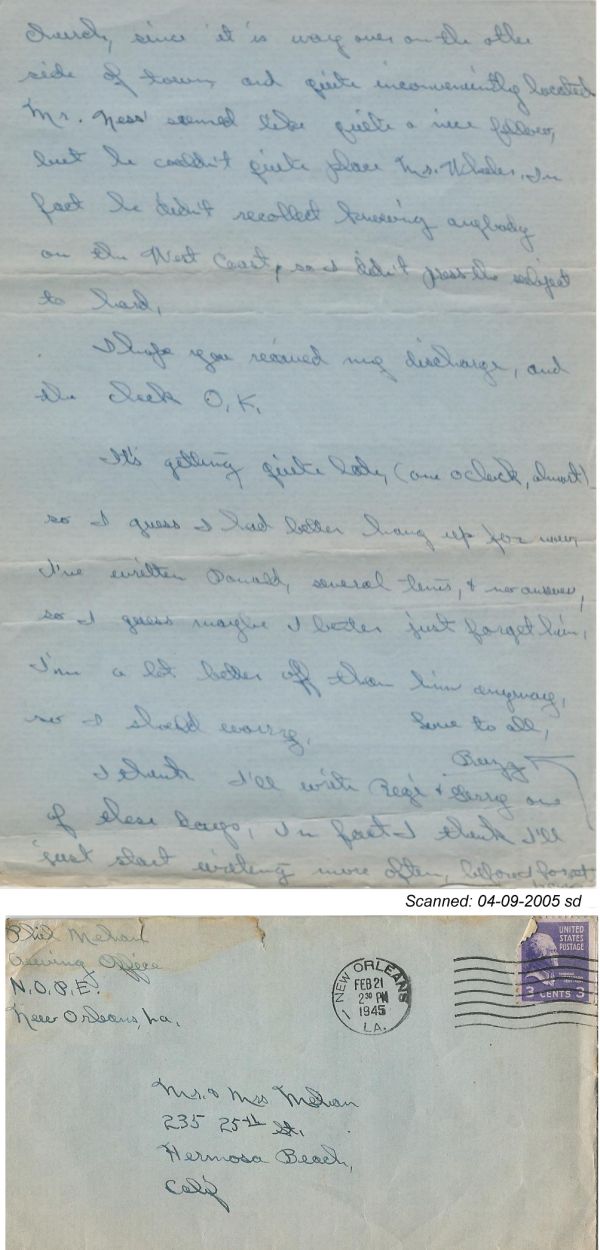 church, since it is way over on the other
side of town, and quite inconveniently located
Mr. Ness seemed like quite a nice fellow,
but he couldn't quite place Mr. Wheeler. In
fact he didn't recollect knowing anybody
on the West Coast, so I didn't press the subject
to hard.
I hope you received my discharge, and
the check O.K.
It's getting quite late, (one o'clock, almost)
so I guess I had better hang up for now
I've written Donald, several times, & no answer,
so I guess maybe I better just forget him,
I'm a lot better off than him anyway,
so I should worry. Love to all,
I think I'll write Regi & Gerry one
of these days, In fact I think I'll
just start writing more often, before I forget
Scanned: 04-09-2005 sd
Phil Mehan
Crewing Office
N.O.P.E.
New Orleans, La.
NEW ORLEANS
1
FEB 21
2 30 PM
1945
LA.
UNITED
STATES
POSTAGE
3 CENTS 3
Mr. & Mrs Mehan
235 25th St.
Hermosa Beach,
Calif